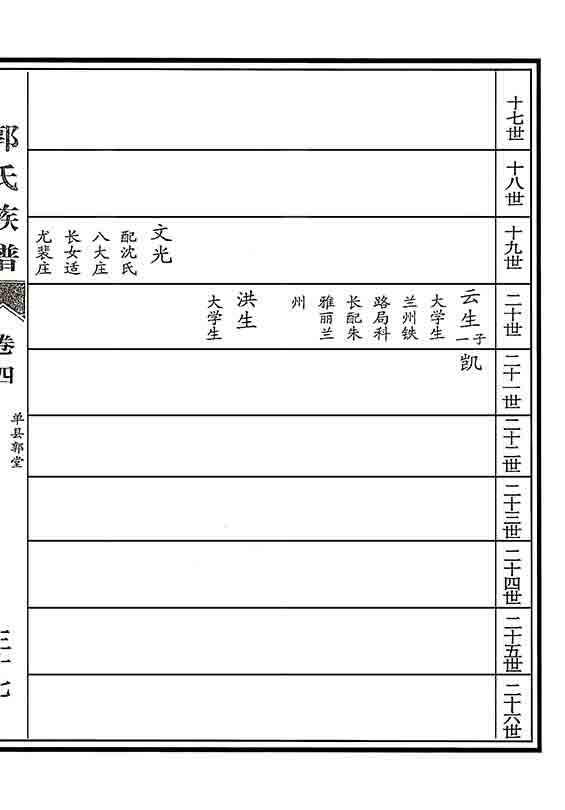 十七世
十八世
十九世
文光
配沈氏
八大庄
长女适
尤裴庄
二十世
云生
大学生
兰州铁
路局科
长配朱
雅丽兰
州
洪生
大学生
二十一世
一子
凯
二十二世
二十三世
二十四世
二十五世
二十六世
郭氏族谱
卷四
单县郭堂
三十七